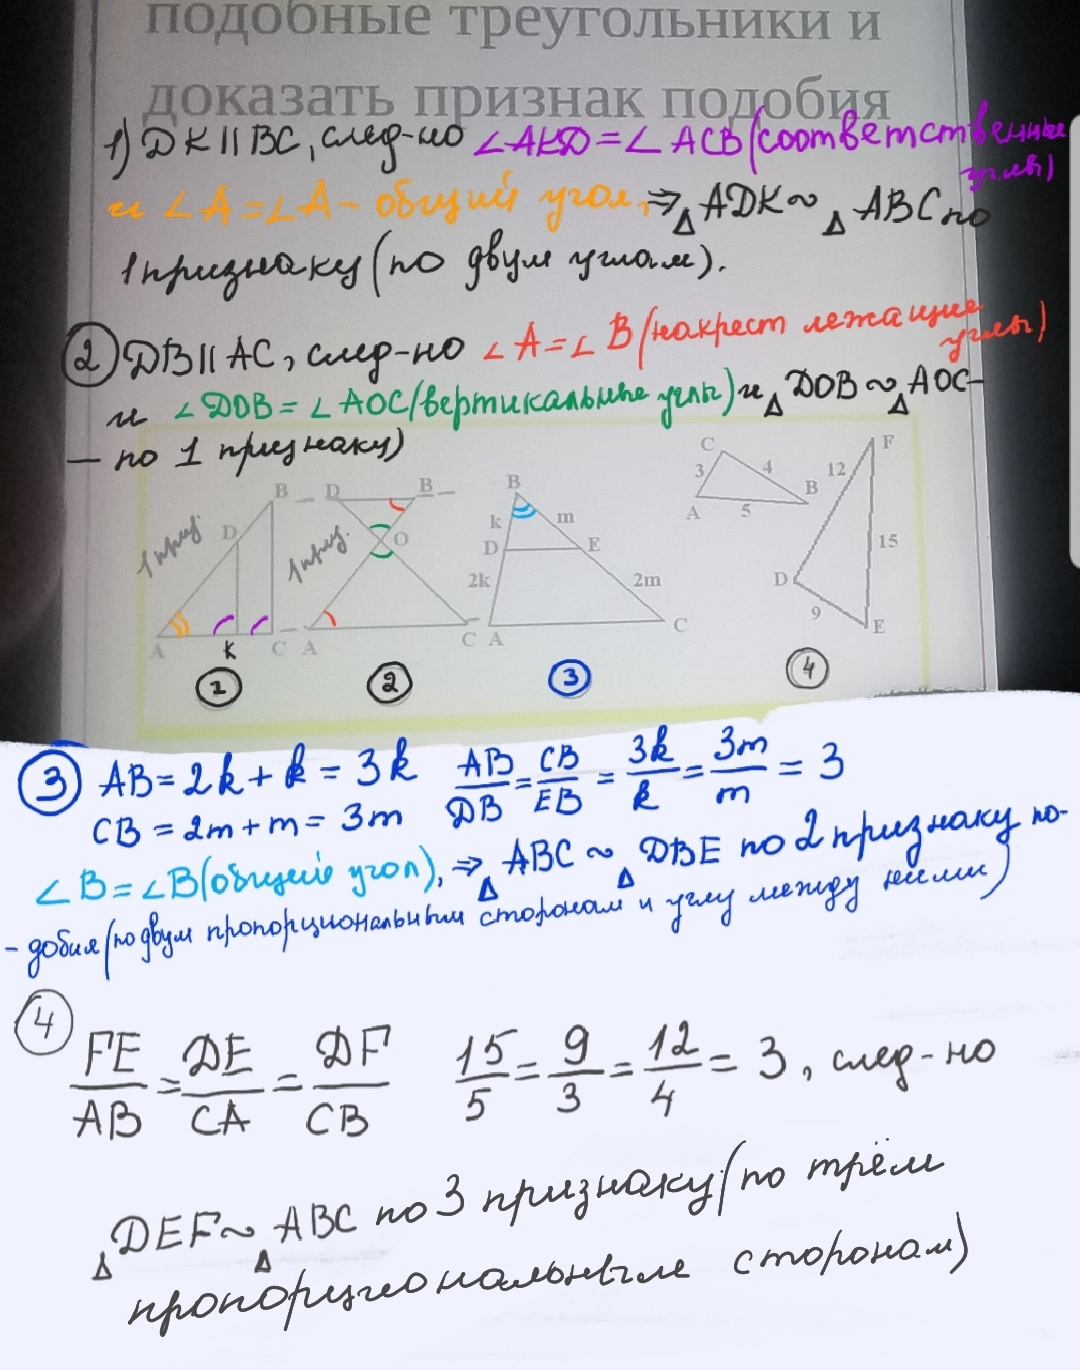 подобные треугольники и
доказать признак подобия
1) DK || BC, след-но ∠AKD = ∠ACB (соответственные
углы)
и ∠A = ∠A - общий угол, ⇒ △ADK ~ △ABC по
1 признаку (по двум углам).
2 DB || AC, след-но ∠A = ∠B (накрест лежащие
углы)
и ∠DOB = ∠AOC (вертикальные углы) и △DOB ~ △AOC -
- по 1 признаку)
1 приз. A D B K C
1
1 приз. D B O A C
2
B k m D E 2k 2m A C
3
C 3 4 A 5 B F 12 15 D 9 E
4
3 AB = 2k + k = 3k AB/DB = CB/EB = 3k/k = 3m/m = 3
CB = 2m + m = 3m
∠B = ∠B (общий угол), ⇒ △ABC ~ △DBE по 2 признаку по-
- добия (по двум пропорциональным сторонам и углу между ними)
4 FE/AB = DE/CA = DF/CB 15/5 = 9/3 = 12/4 = 3, след-но
△DEF ~ △ABC по 3 признаку (по трём
пропорциональным сторонам)